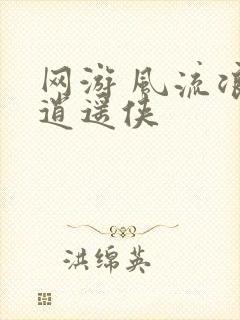 网游风流
逍遥侠
洪绵英